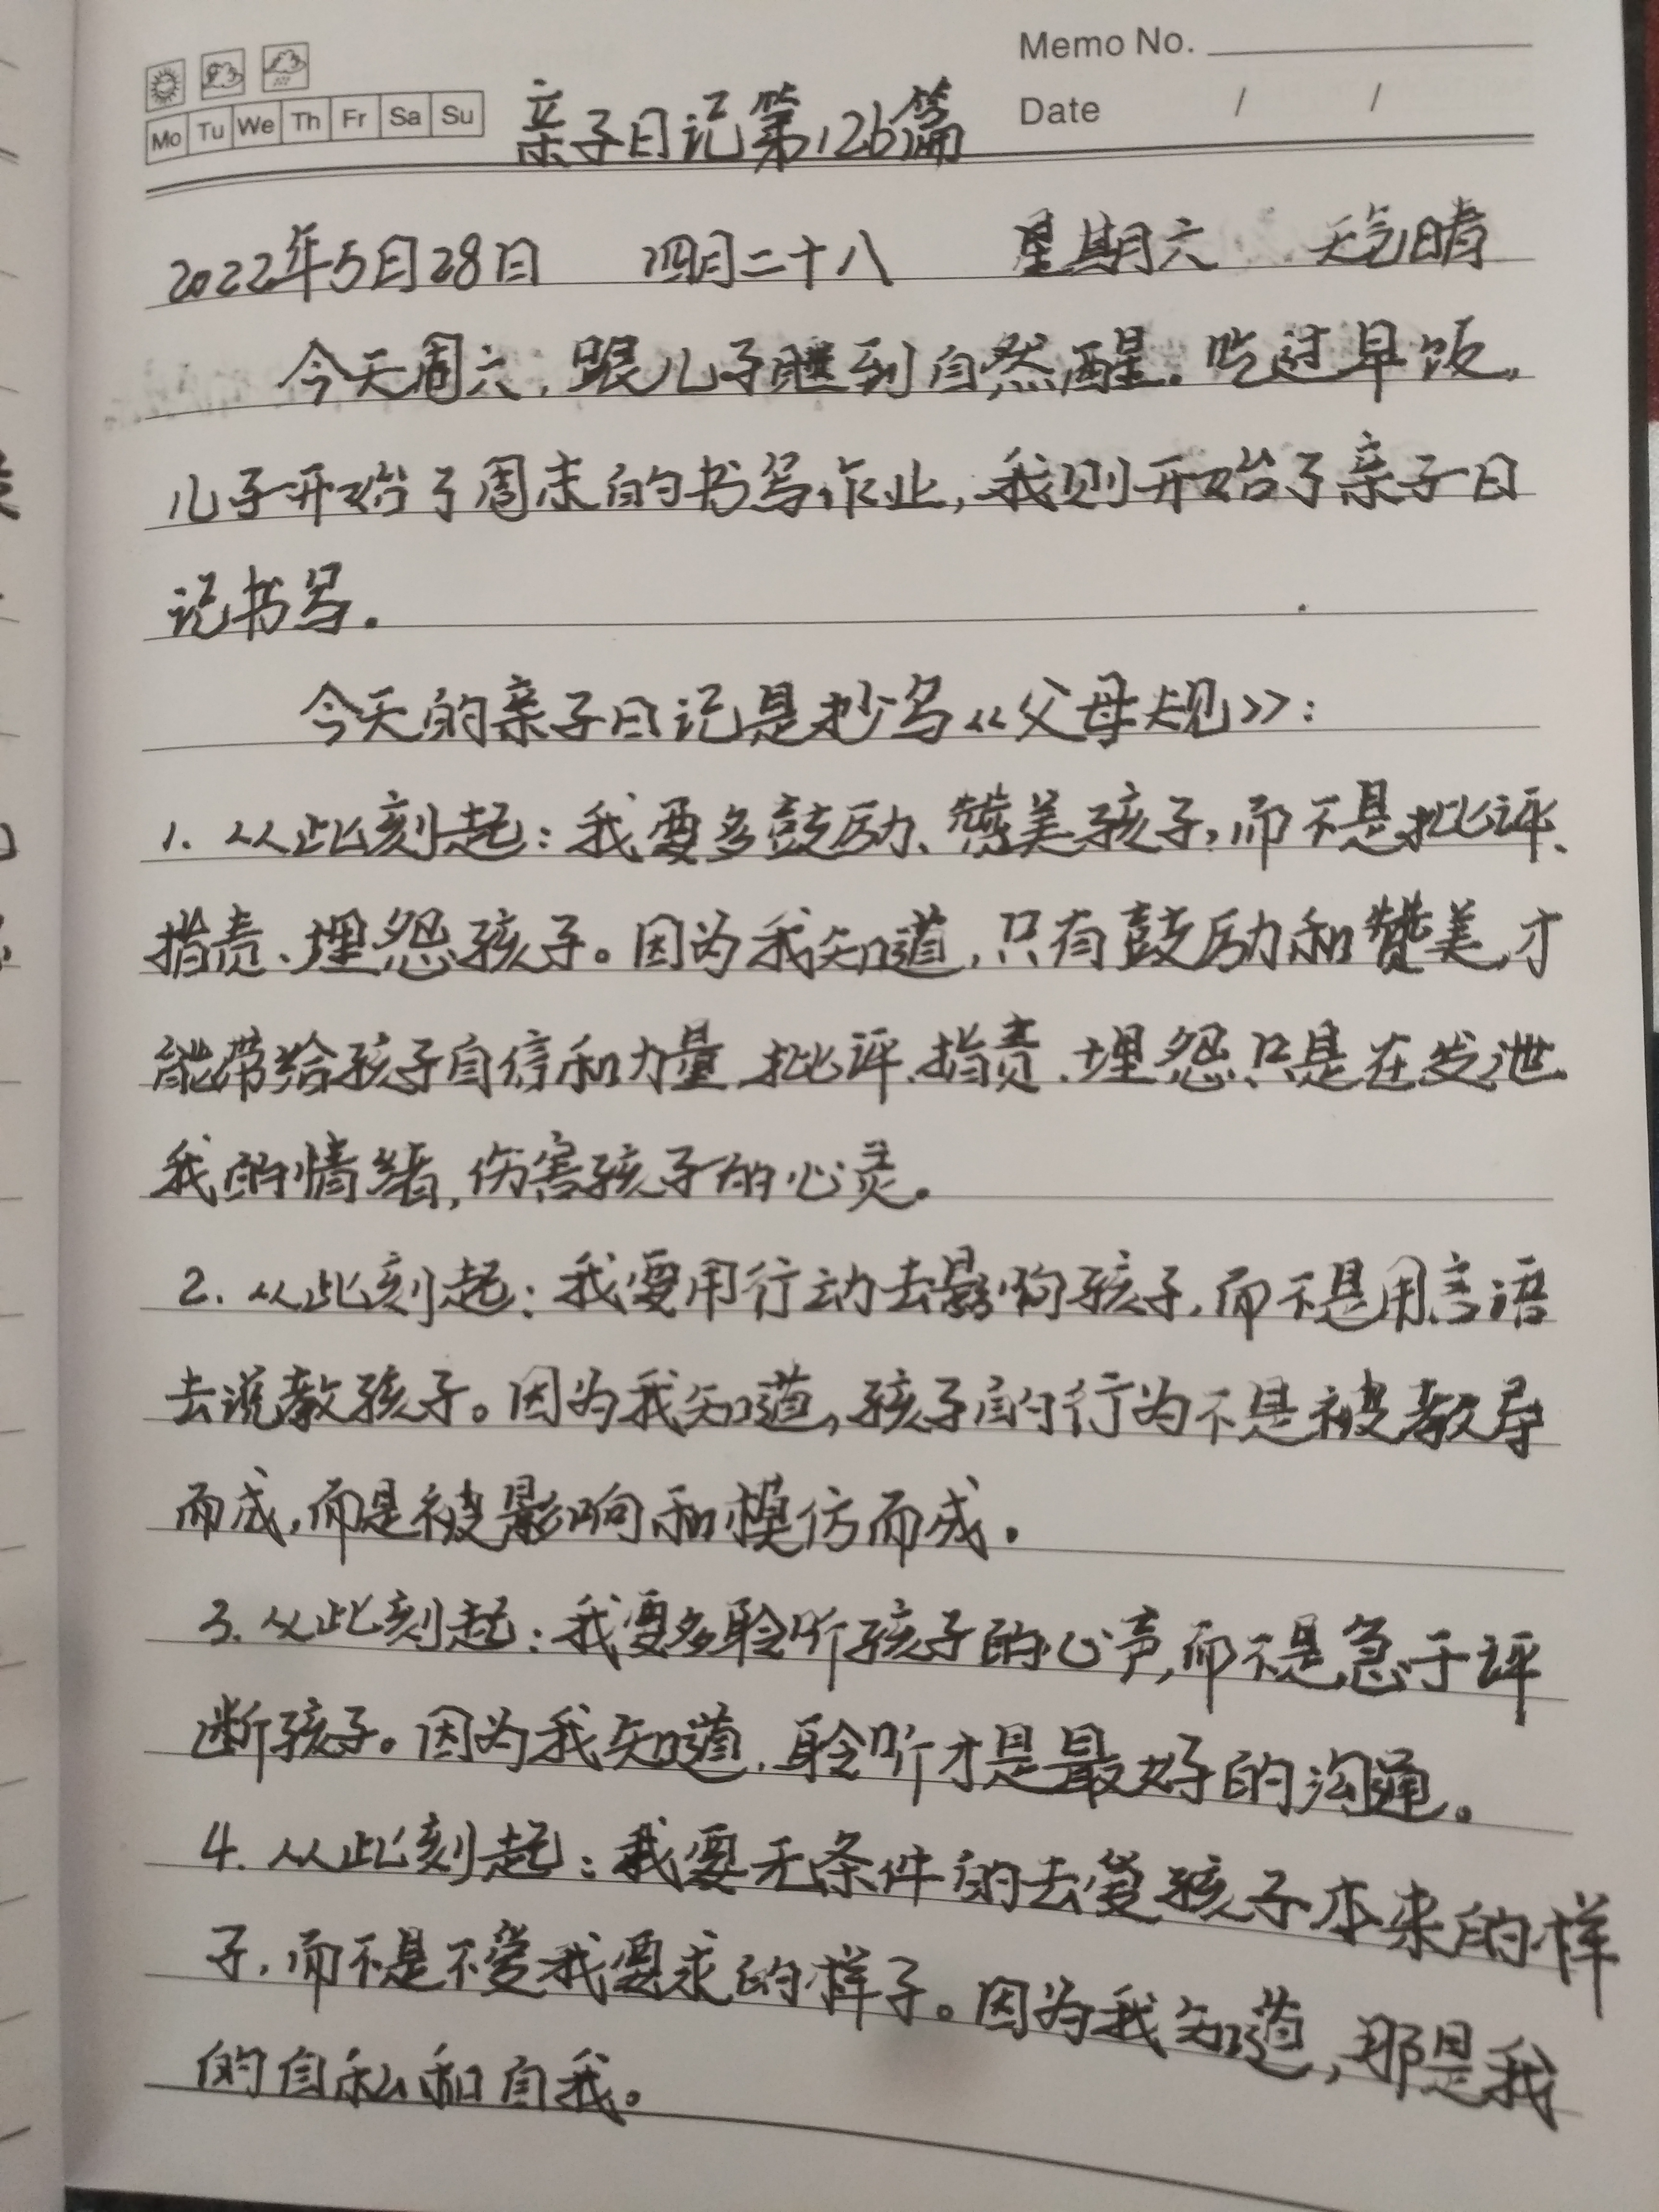 Memo No.
Mo Tu We Th Fr Sa Su
Date / /
亲子日记第126篇
2022年5月28日 四月二十八 星期六 天气晴
今天周六,跟儿子睡到自然醒.吃过早饭,
儿子开始了周末的书写作业,我则开始了亲子日
记书写.
今天的亲子日记是抄写《父母规》:
1.从此刻起:我要多鼓励、赞美孩子,而不是批评、
指责、埋怨孩子。因为我知道,只有鼓励和赞美,才
能带给孩子自信和力量,批评、指责、埋怨只是在发泄
我的情绪,伤害孩子的心灵。
2.从此刻起:我要用行动去影响孩子,而不是用言语
去说教孩子。因为我知道,孩子的行为不是被教导
而成,而是被影响和模仿而成.
3.从此刻起:我要多聆听孩子的心声,而不是急于评
断孩子。因为我知道,聆听才是最好的沟通。
4.从此刻起:我要无条件的去爱孩子本来的样
子,而不是不爱我要求的样子。因为我知道,那是我
的自私和自我。